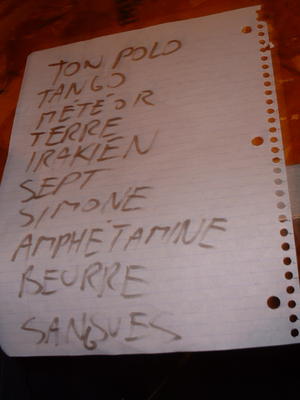 TON POLO
TANGO
MÉTÉOR
TERRE
IRAKIEN
SEPT
SIMONE
AMPHÉTAMINE
BEURRE
SANGSUES